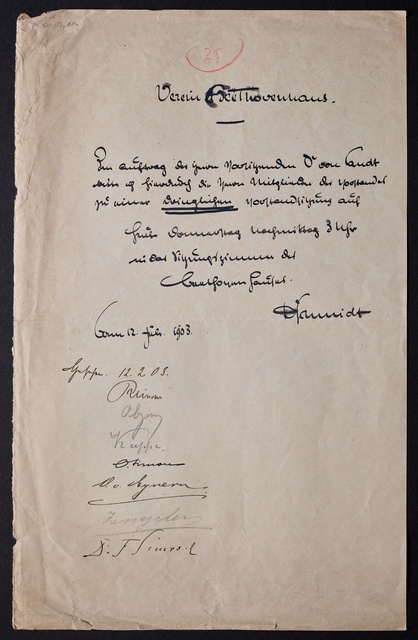 25
Verein Beethovenhaus.
Im Auftrag des Herrn Vorsitzenden Dr van Zandt
bitte ich hierdurch die Herrn Mitglieder des Vorstandes
zu einer dringlichen Vorstandssitzung auf
heute Donnerstag Nachmittag 3 Uhr
in das Sitzungszimmer des
Beethovenhauses.
Schmidt
Bonn 12. Febr. 1903.
12.2.03.
A. v. Eynern
Dr. F.